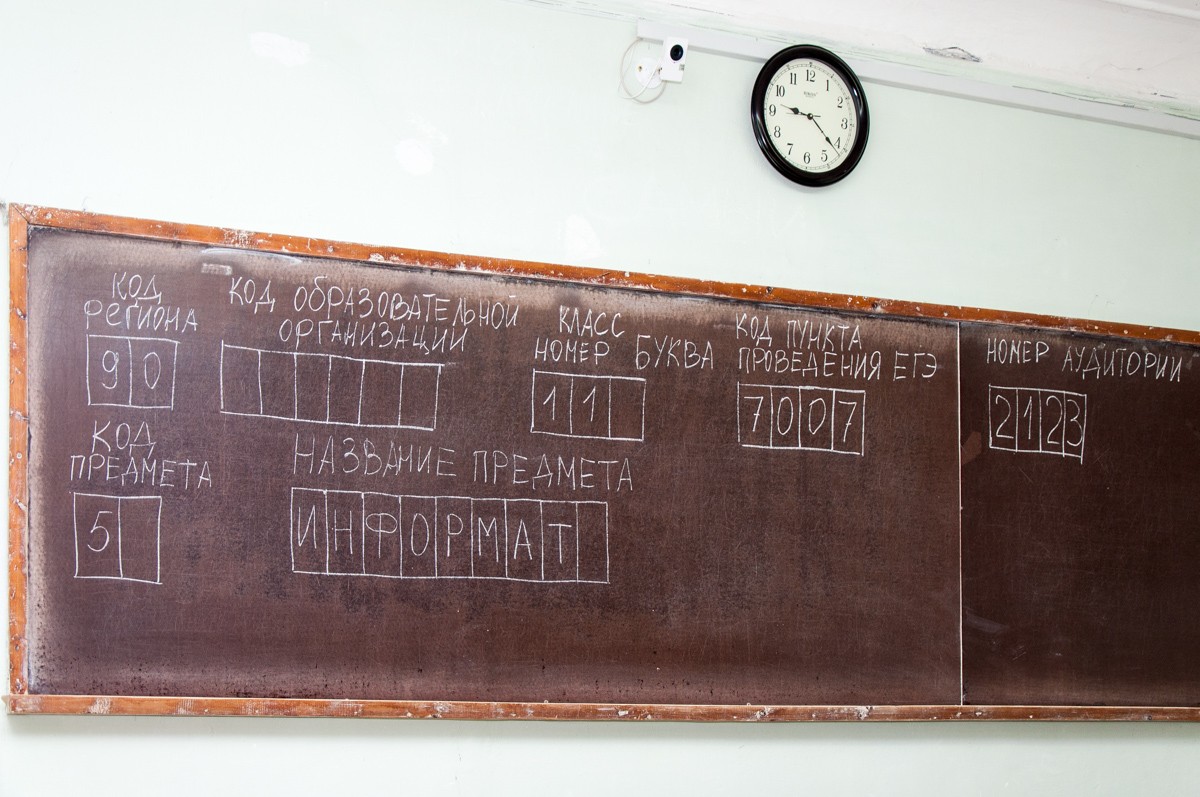 12
1
2
3
4
5
6
7
8
9
10
11
КОД
РЕГИОНА
90
КОД ОБРАЗОВАТЕЛЬНОЙ
ОРГАНИЗАЦИИ
КЛАСС
НОМЕР БУКВА
11
КОД ПУНКТА
ПРОВЕДЕНИЯ ЕГЭ
7007
НОМЕР АУДИТОРИИ
2123
КОД
ПРЕДМЕТА
5
НАЗВАНИЕ ПРЕДМЕТА
ИНФОРМАТ